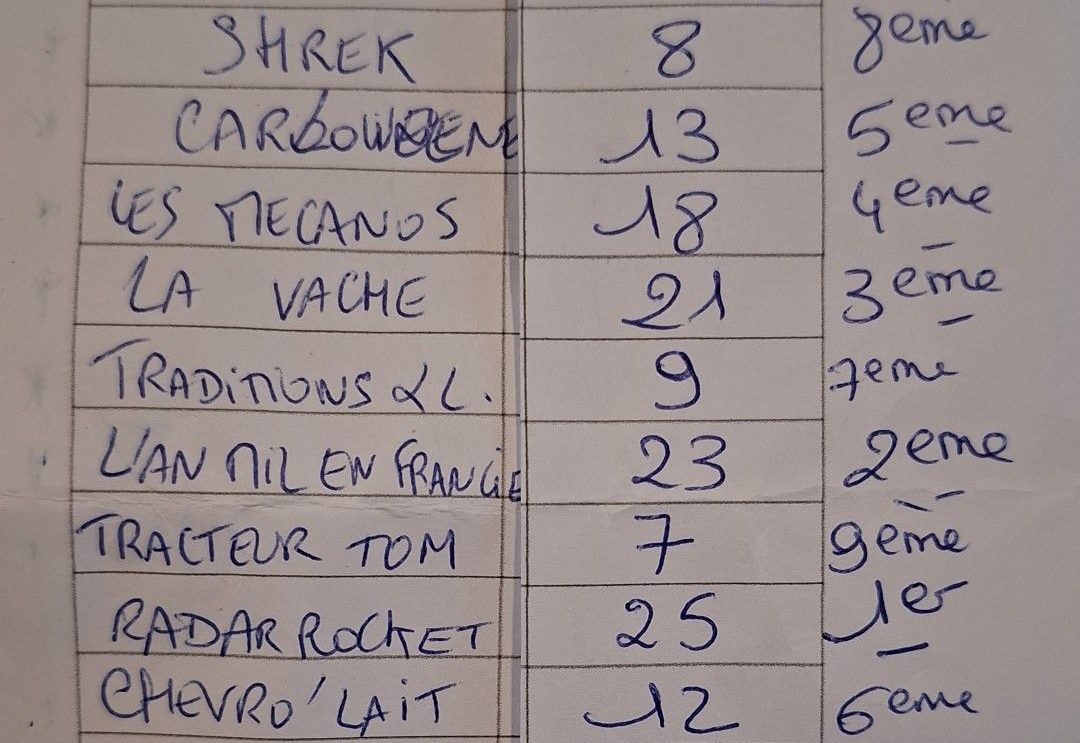 SHREK 8 8eme
13 5eme
LES MECANOS 18 4eme
LA VACHE 21 3eme
TRADITIONS & L. 9 7eme
L'AN MIL EN FRANCIE 23 2eme
TRACTEUR TOM 7 9eme
RADAR ROCKET 25 1er
CHEVRO'LAIT 12 6eme